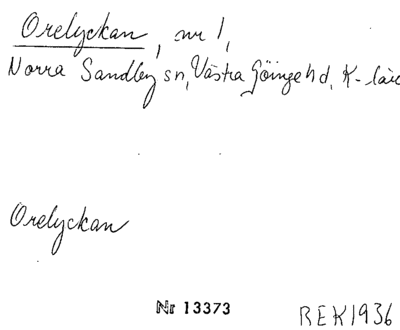 Orelyckan, nr 1,
Norra Sandby sn, Västra Göinge hd, K-län
Orelyckan
Nr 13373
BEK1936